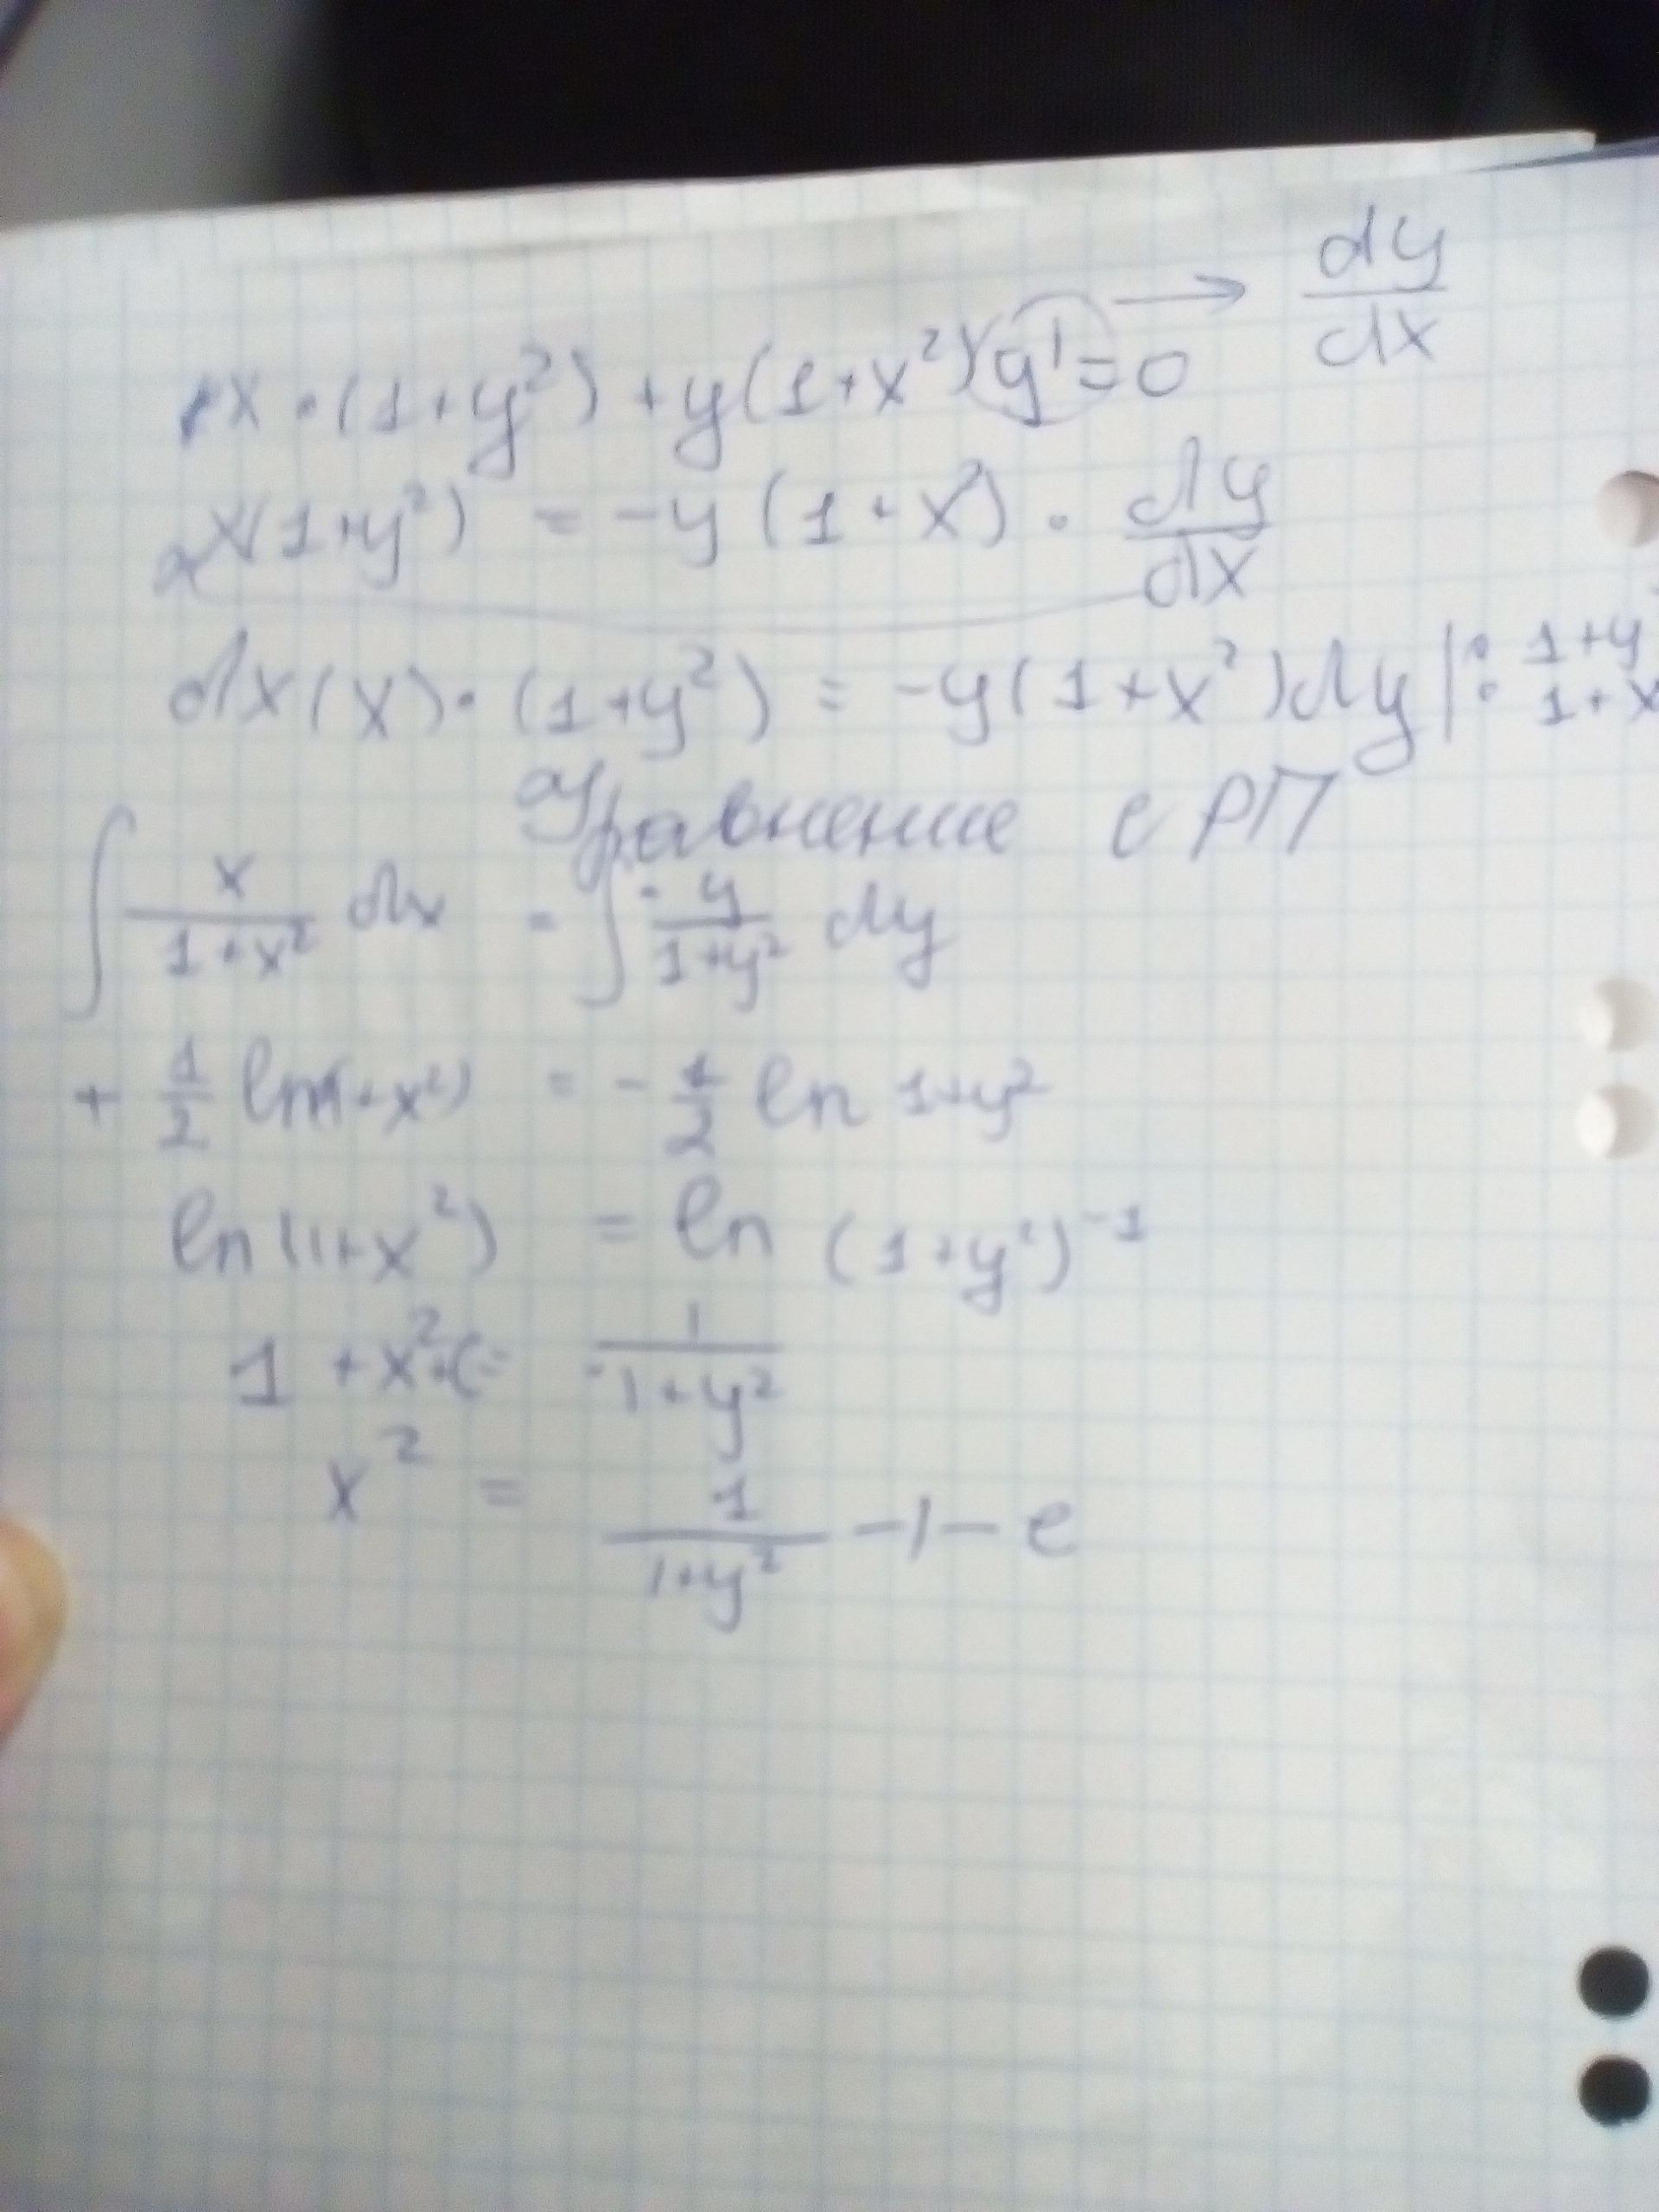 x · (1+y²) + y(1+x²)y' = 0 → dy/dx
x(1+y²) = -y (1+x²) · dy/dx
dx(x) · (1+y²) = -y(1+x²)dy | : 1+y : 1+x
Уравнение с РП
∫ x/(1+x²) dx = ∫ -y/(1+y²) dy
+ 1/2 ln(1+x²) = - 1/2 ln 1+y²
ln(1+x²) = ln (1+y²)⁻¹
1 + x² + C = 1/(1+y²)
x² = 1/(1+y²) - 1 - c